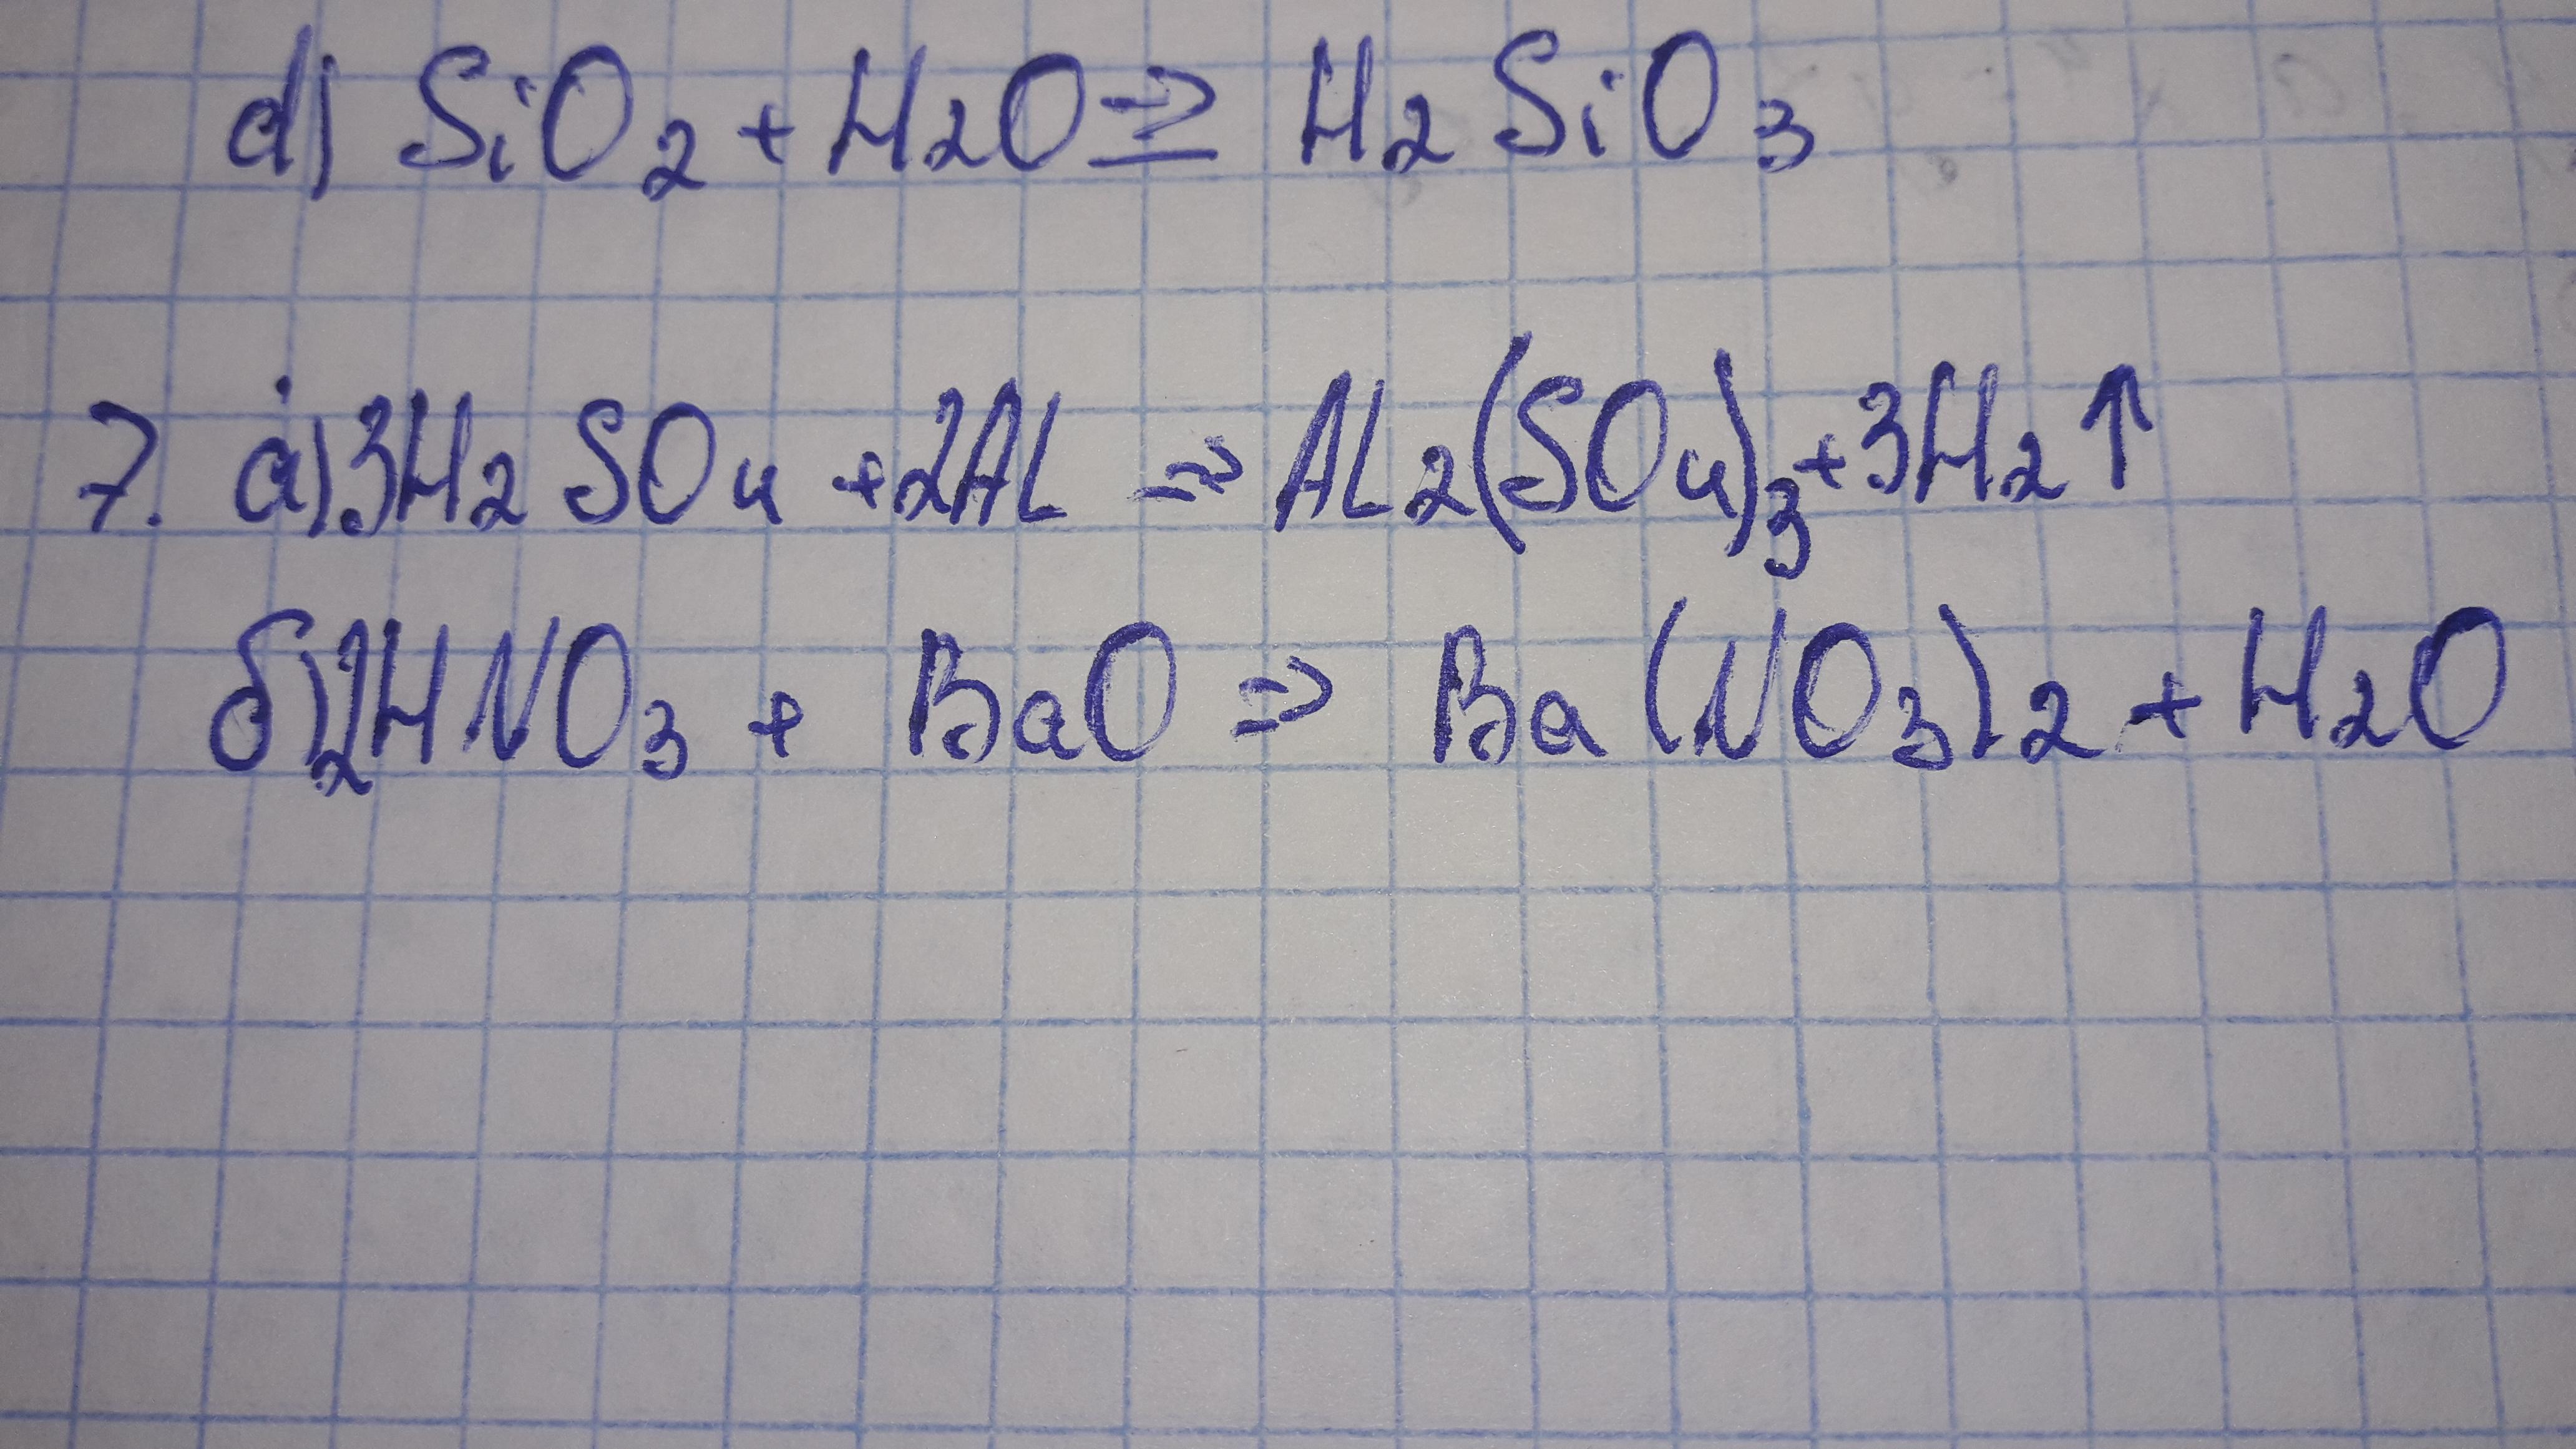 d) SiO2 + H2O => H2SiO3
7. а) 3H2SO4 + 2Al => Al2(SO4)3 + 3H2↑
б) 2HNO3 + BaO => Ba(NO3)2 + H2O